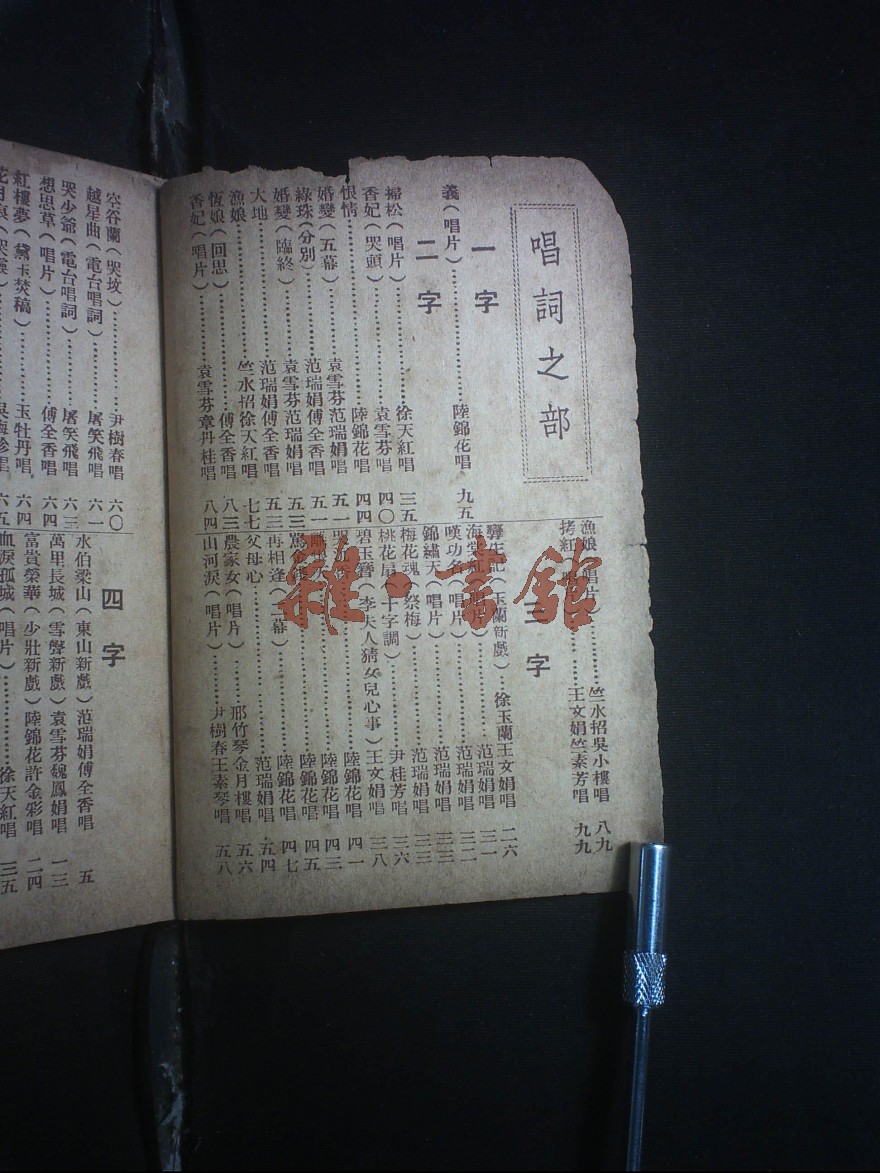 唱詞之部
一字
義（唱片）陸錦花唱 九五
二字
掃松（唱片）徐天紅唱 三五
香妃（哭頭）袁雪芬唱 四〇
恨情 陸錦花唱 四四
婚變（五幕）袁雪芬范瑞娟唱 五一
綠珠（分別）范瑞娟傅全香唱 五一
婚變（臨終）袁雪芬范瑞娟唱 五三
大地 范瑞娟傅全香唱 五三
漁娘 竺水招徐天紅唱 七七
恆娘（回思）傅全香唱 八三
香妃（唱片）袁雪芬章丹桂唱 八四
漁娘（唱片）竺水招吳小樓唱 八九
拷紅 王文娟竺素芳唱 九九
三字
（玉蘭新戲）徐玉蘭王文娟唱 二六
海棠紅（唱片）范瑞娟唱 三一
嘆功名（唱片）范瑞娟唱 三二
錦繡天（唱片）范瑞娟唱 三三
梅花魂（祭梅）范瑞娟唱 三三
桃花扇（十字調）尹桂芳唱 三六
碧玉簪（李夫人猜女兒心事）王文娟唱 三八
陸錦花唱 四一
陸錦花唱 四三
陸錦花唱 四五
再相逢（二幕）陸錦花唱 四七
父母心 范瑞娟唱 五四
農家女（唱片）邢竹琴金月樓唱 五六
山河淚（唱片）尹樹春王素琴唱 五八
空谷蘭（哭墳）尹樹春唱 六〇
越星曲（電台唱詞）屠笑飛唱 六一
哭少爺（電台唱詞）屠笑飛唱 六三
想思草（唱片）傅全香唱 六四
紅樓夢（黛玉焚稿）玉牡丹唱 六四
六五
四字
水伯梁山（東山新戲）范瑞娟傅全香唱 五
萬里長城（雪聲新戲）袁雪芬魏鳳娟唱 一三
富貴榮華（少壯新戲）陸錦花許金彩唱 二四
血淚孤城（唱片）徐天紅唱 三五
雅·書館